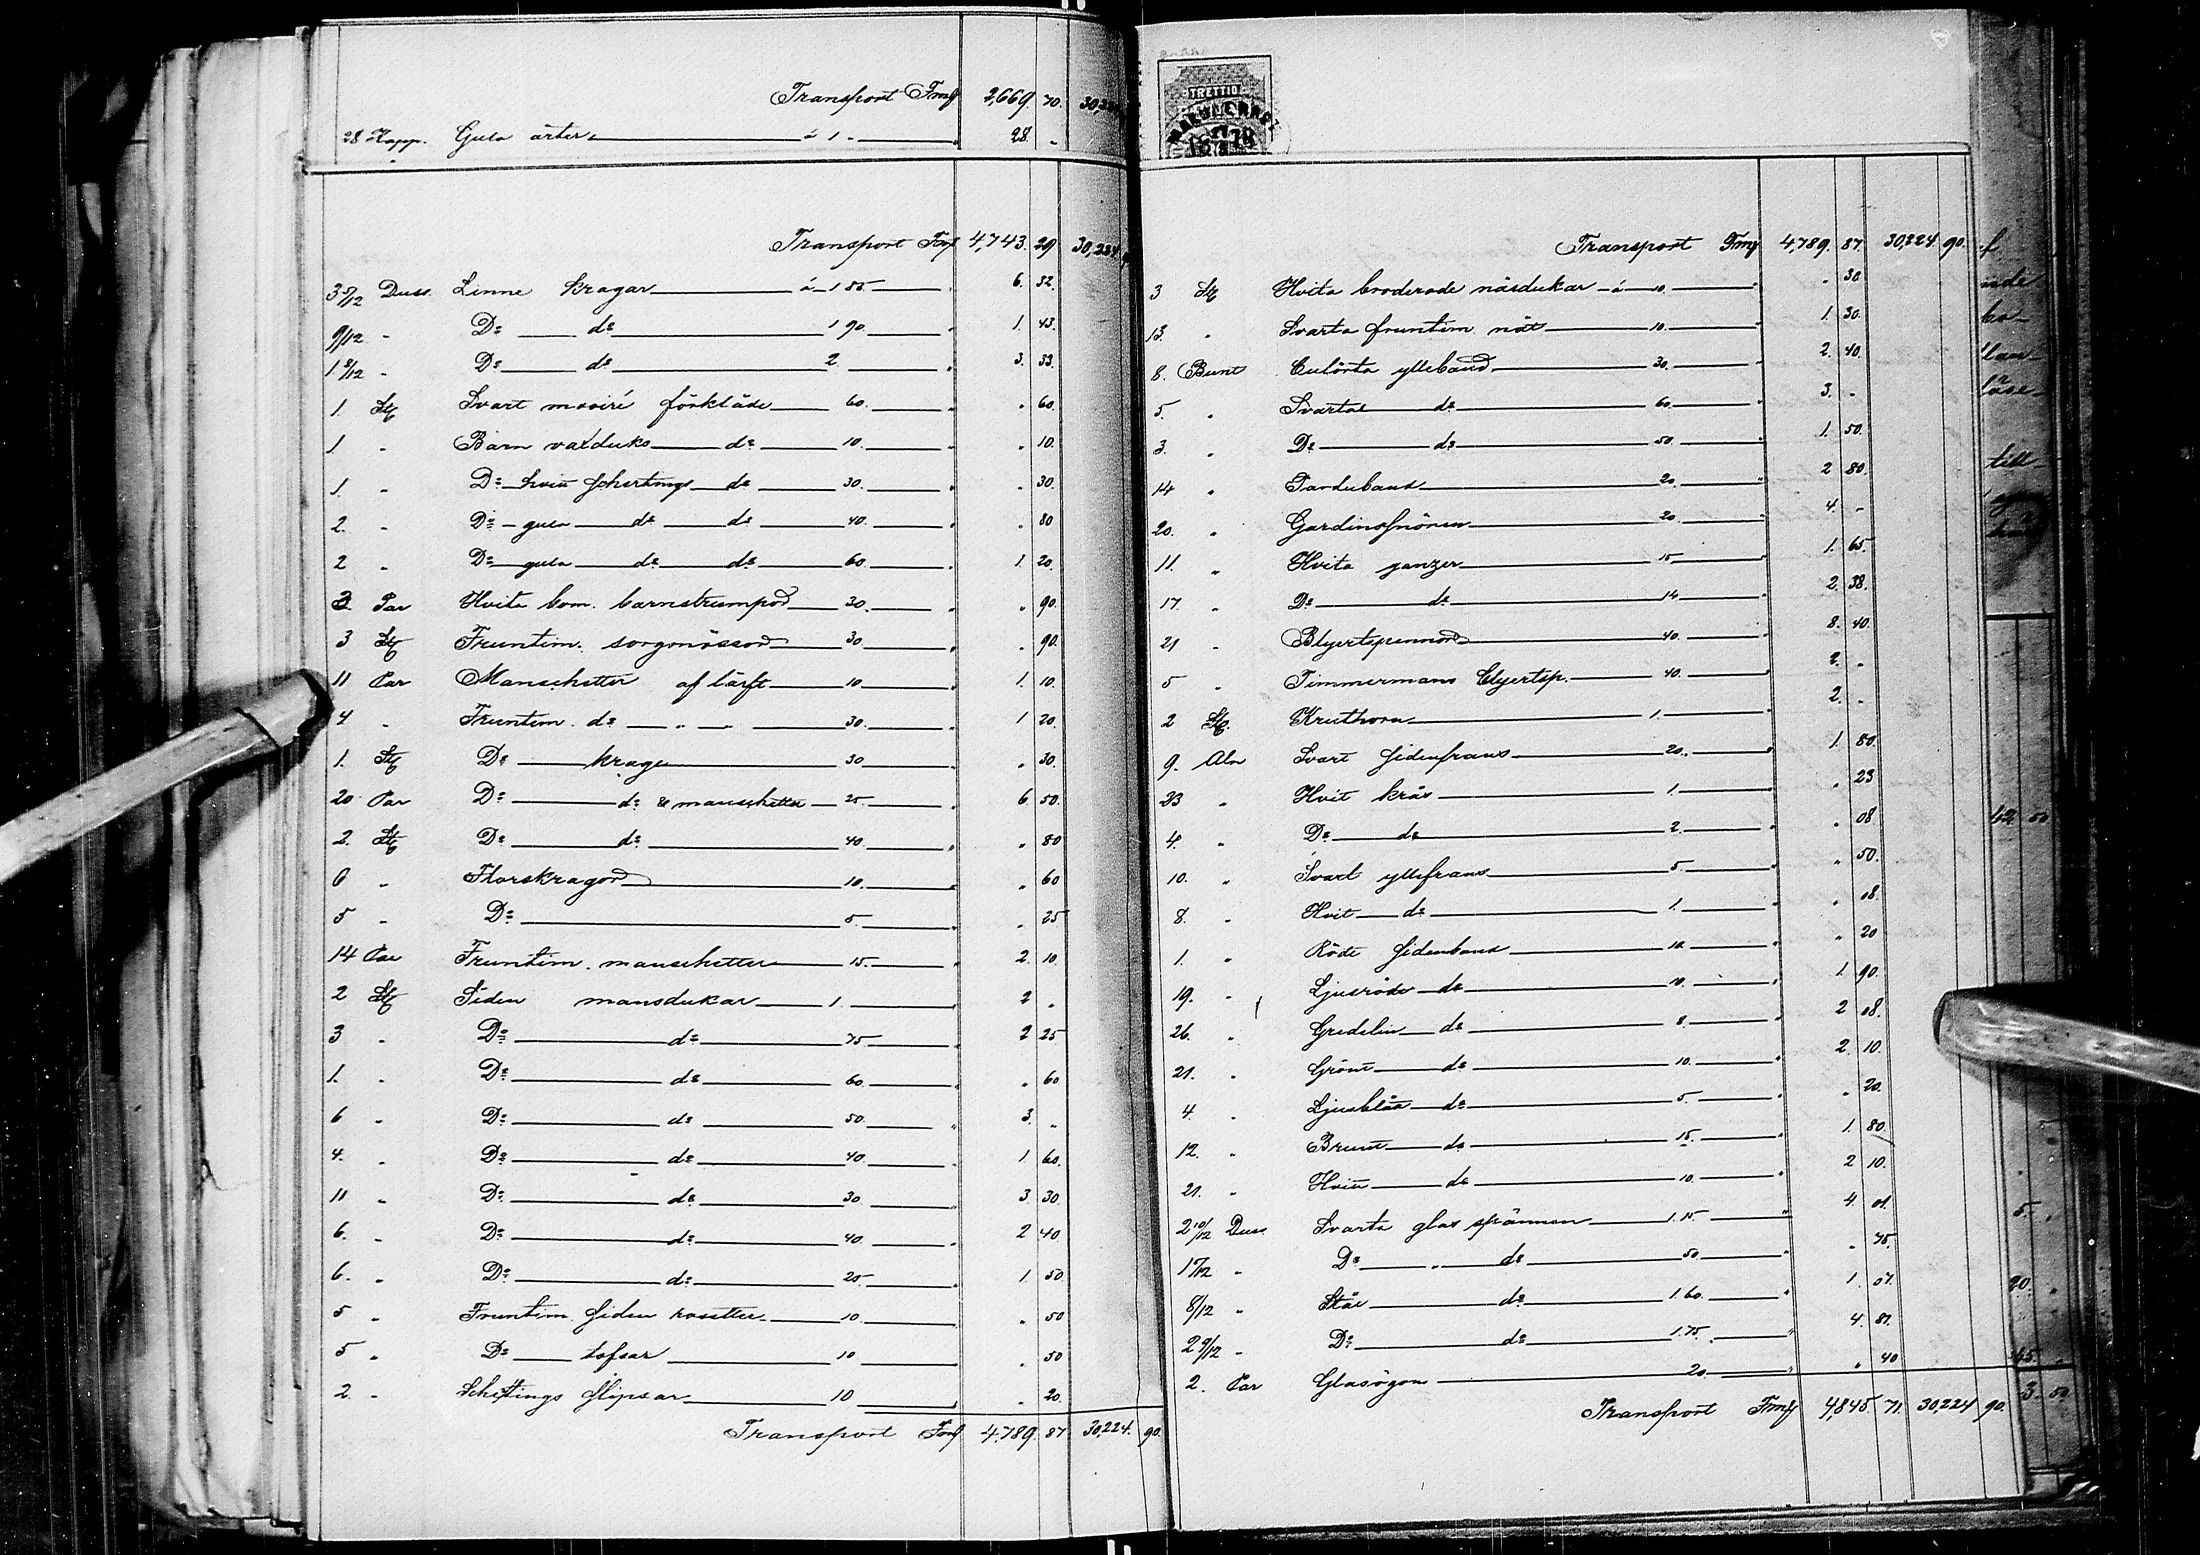 Transport Fmk 2,669. 70. 30,22
28 Kapp. Gula ärter à 1 - 28. -
Transport Fmk 4,743. 29 30,224.
3 5/12 Duss. Linne kragar à 1 85 6. 32.
9/12 - Do do 1 90. 1. 43.
1 8/12 - Do do 2 3. 33.
1. St Svart moiré förkläde 60. . 60.
1 - Barn vaxduks do 10. . 10.
1. - Do hvitt schertings do 30. . 30.
2. - Do gula do do 40. . 80
2 - Do gula do do 60. 1. 20.
3 Par Hvita bom. barnstrumpor 30. . 90.
3 St Fruntim. sorgmössor 30 . 90.
11 Par Manschetter af lärft 10 1. 10.
4 . Fruntim. do " " 30. 1 20.
1. St Do krage 30 . 30.
20 Par Do do & manschetter 25 6. 50.
2. St Do do 40. . 80
6 - Florskragar 10. . 60
5 - Do 5 . 25
14 Par Fruntim. manschetter 15. 2. 10.
2 St Siden mansdukar 1. 2 .
3 . Do do 75 2 25
1. . Do do 60 . 60
6 . Do do 50. 3. .
4. . Do do 40 1 60.
11 . Do do 30 3. 30.
6. . Do do 40. 2 40
6. . Do do 25 1. 50.
5 " Fruntim. siden rosetter 10 . 50
5 " Do tofsar 10 . 50
2. - Schertings slipsar 10 . 20.
Transport Fmk 4,789. 87 30,224. 90.
TRETTIO
1878
Transport Fmk 4,789. 87. 30,224 90.
3 St Hvita broderade näsdukar à 10. . 30.
13. " Svarta fruntim nät 10. 1. 30.
8. Bunt Culörta ylleband 30. 2. 40.
5. " Svarta do 60. 3. .
3. " Do do 50. 1. 50.
14 " 20. 2 80.
20. " Gardinsnören 20. 4. -
11. " Hvita ganzer 15 1. 65.
17. " Do do 14 2. 38.
21 - Blyertspennor 40. 8. 40.
5 " Timmermans blyertsp. 40. 2. .
2 St. Kruthorn 1. 2. .
9. Aln Svart sidenfrans 20. 1. 80.
23 " Hvit krås 1. . 23
4. " Do do 2. . 08
10. " Svart yllefrans 5. . 50.
8. " Hvit do 1. . 08.
1. " Röde sidenband 10. . 20
19. - Ljusröda do 10. 1. 90.
26. " Gredelin do 8. 2 08.
21. " Grönt do 10. 2. 10.
4 " Ljusblåa do 5. . 20.
12. " Brunt do 15. 1. 80.
21. " Hvitt do 10. 2 10.
2 10/12 Duss. Svarta glas spännen 1.15. 4 01.
- Do " do 50 . 75.
8/12 " Stål do 1.60. 1. 07.
2 9/12 - Do do 1.75. 4. 81.
2. Par Glasögon 20 . 40
Transport Fmk 4,845 71. 30,224 90.